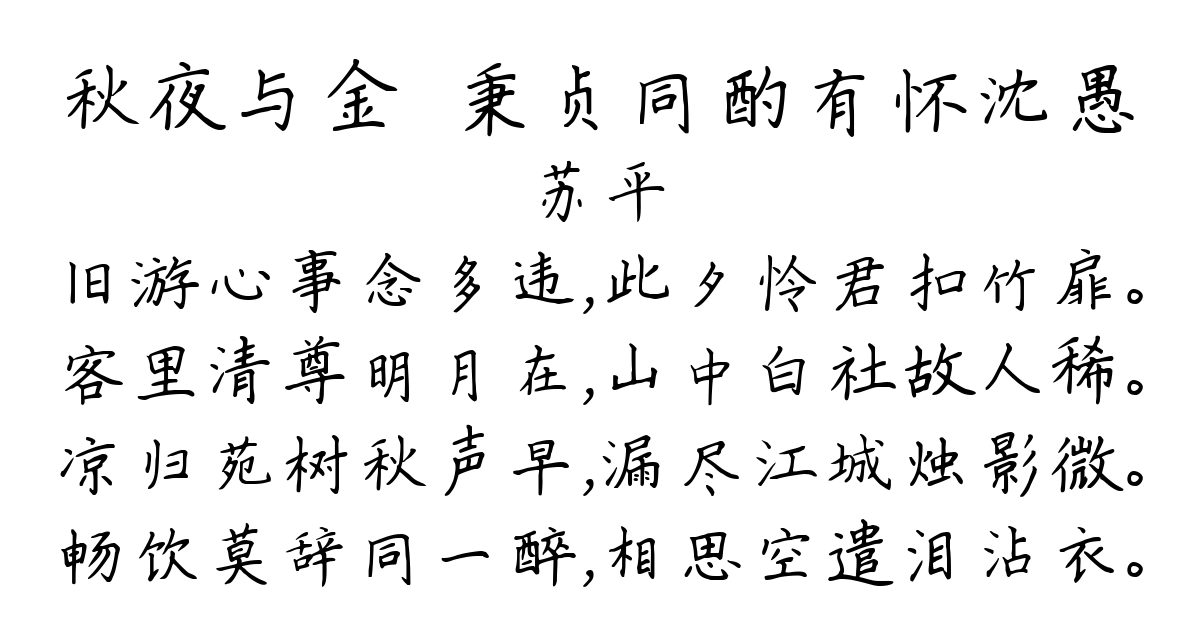 秋夜与金 秉贞同酌有怀沈愚
苏平
旧游心事念多违,此夕怜君扣竹扉。
客里清尊明月在,山中白社故人稀。
凉归苑树秋声早,漏尽江城烛影微。
畅饮莫辞同一醉,相思空遣泪沾衣。